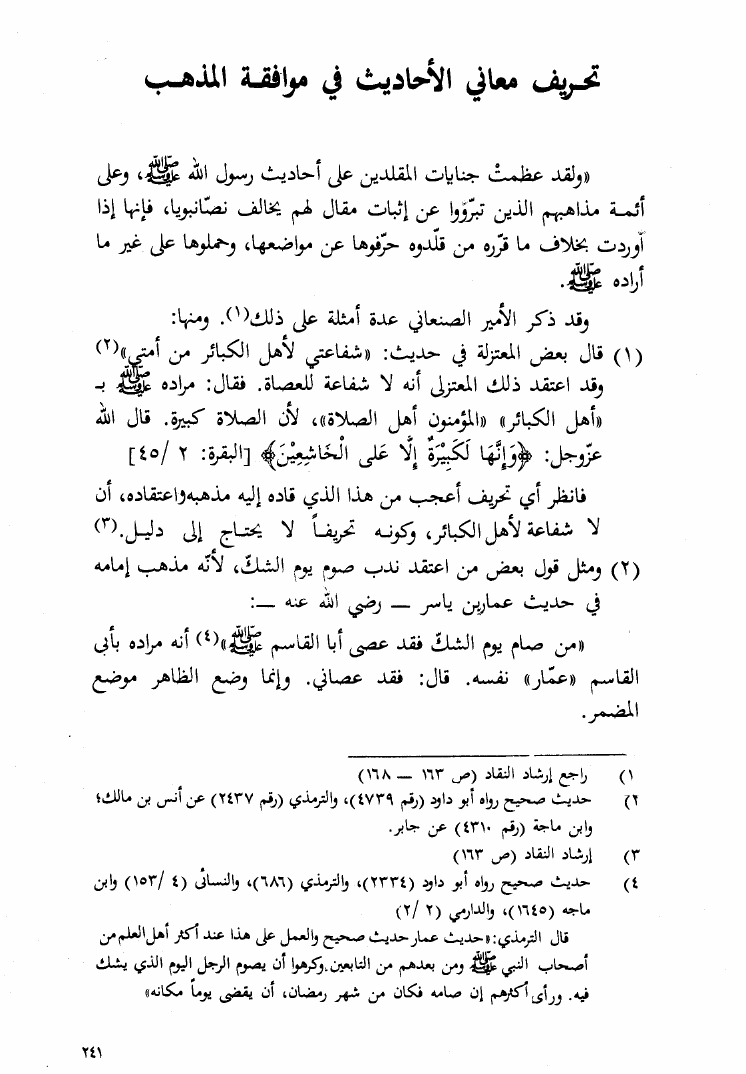 تحريف معاني الأحاديث في موافقة المذهب
«ولقد عظمتْ جنايات المقلدين على أحاديث رسول الله ﷺ، وعلى
أئمة مذاهبهم الذين تبرّؤوا عن إثبات مقال لهم يخالف نصّانبويا، فإنها إذا
أوردت بخلاف ما قرّره من قلّدوه حرّفوها عن مواضعها، وحملوها على غير ما
أراده ﷺ.
وقد ذكر الأمير الصنعاني عدة أمثلة على ذلك(١). ومنها:
(١) قال بعض المعتزلة في حديث: «شفاعتي لأهل الكبائر من أمتي»(٢)
وقد اعتقد ذلك المعتزلى أنه لا شفاعة للعصاة. فقال: مراده ﷺ بـ
«أهل الكبائر» «المؤمنون أهل الصلاة»، لأن الصلاة كبيرة. قال الله
عزّوجل: ﴿وَإِنَّهَا لَكَبِيْرَةٌ إِلَّا عَلى الْخَاشِعِيْنَ﴾ [البقرة: ٢ /٤٥]
فانظر أي تحريف أعجب من هذا الذي قاده إليه مذهبهواعتقاده، أن
لا شفاعة لأهل الكبائر، وكونه تحريفاً لا يحتاج إلى دليل.(٣)
(٢) ومثل قول بعض من اعتقد ندب صوم يوم الشكّ، لأنّه مذهب إمامه
في حديث عماربن ياسر — رضي الله عنه —:
«من صام يوم الشكّ فقد عصى أبا القاسم ﷺ»(٤) أنه مراده بأبى
القاسم «عمّار» نفسه. قال: فقد عصاني. وإنما وضع الظاهر موضع
المضمر.
١) راجع إرشاد النقاد (ص ١٦٣ — ١٦٨)
٢) حديث صحيح رواه أبو داود (رقم ٤٧٣٩)، والترمذي (رقم ٢٤٣٧) عن أنس بن مالك؛
وابن ماجة (رقم ٤٣١٠) عن جابر.
٣) إرشاد النقاد (ص ١٦٣)
٤) حديث صحيح رواه أبو داود (٢٣٣٤)، والترمذي (٦٨٦)، والنسائى (٤ /١٥٣) وابن
ماجه (١٦٤٥)، والدارمي (٢ /٢)
قال الترمذي:«حديث عمار حديث صحيح والعمل على هذا عند أكثر أهل العلم من
أصحاب النبي ﷺ ومن بعدهم من التابعين.وكرهوا أن يصوم الرجل اليوم الذي يشك
فيه. ورأى أكثرهم إن صامه فكان من شهر رمضان، أن يقضى يوماً مكانه»
٢٤١